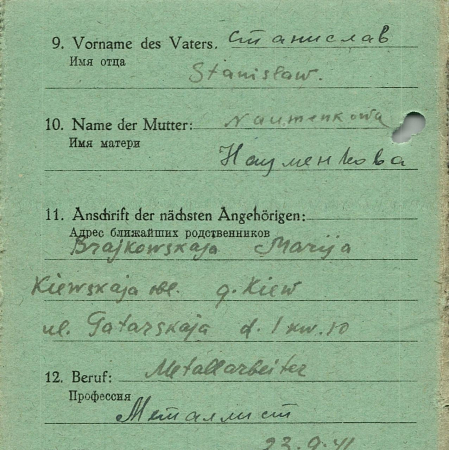 9. Vorname des Vaters. Станислав
Имя отца
Stanisław.
10. Name der Mutter: Naumenkowa
Имя матери
Науменкова
11. Anschrift der nächsten Angehörigen:
Адрес ближайших родственников
Brajkowskaja Marija
Kiewskaja obl. g. Kiew
ul. Tatarskaja d. 1 kw. 10
12. Beruf: Metallarbeiter
Профессия
Металлист
23.9.41